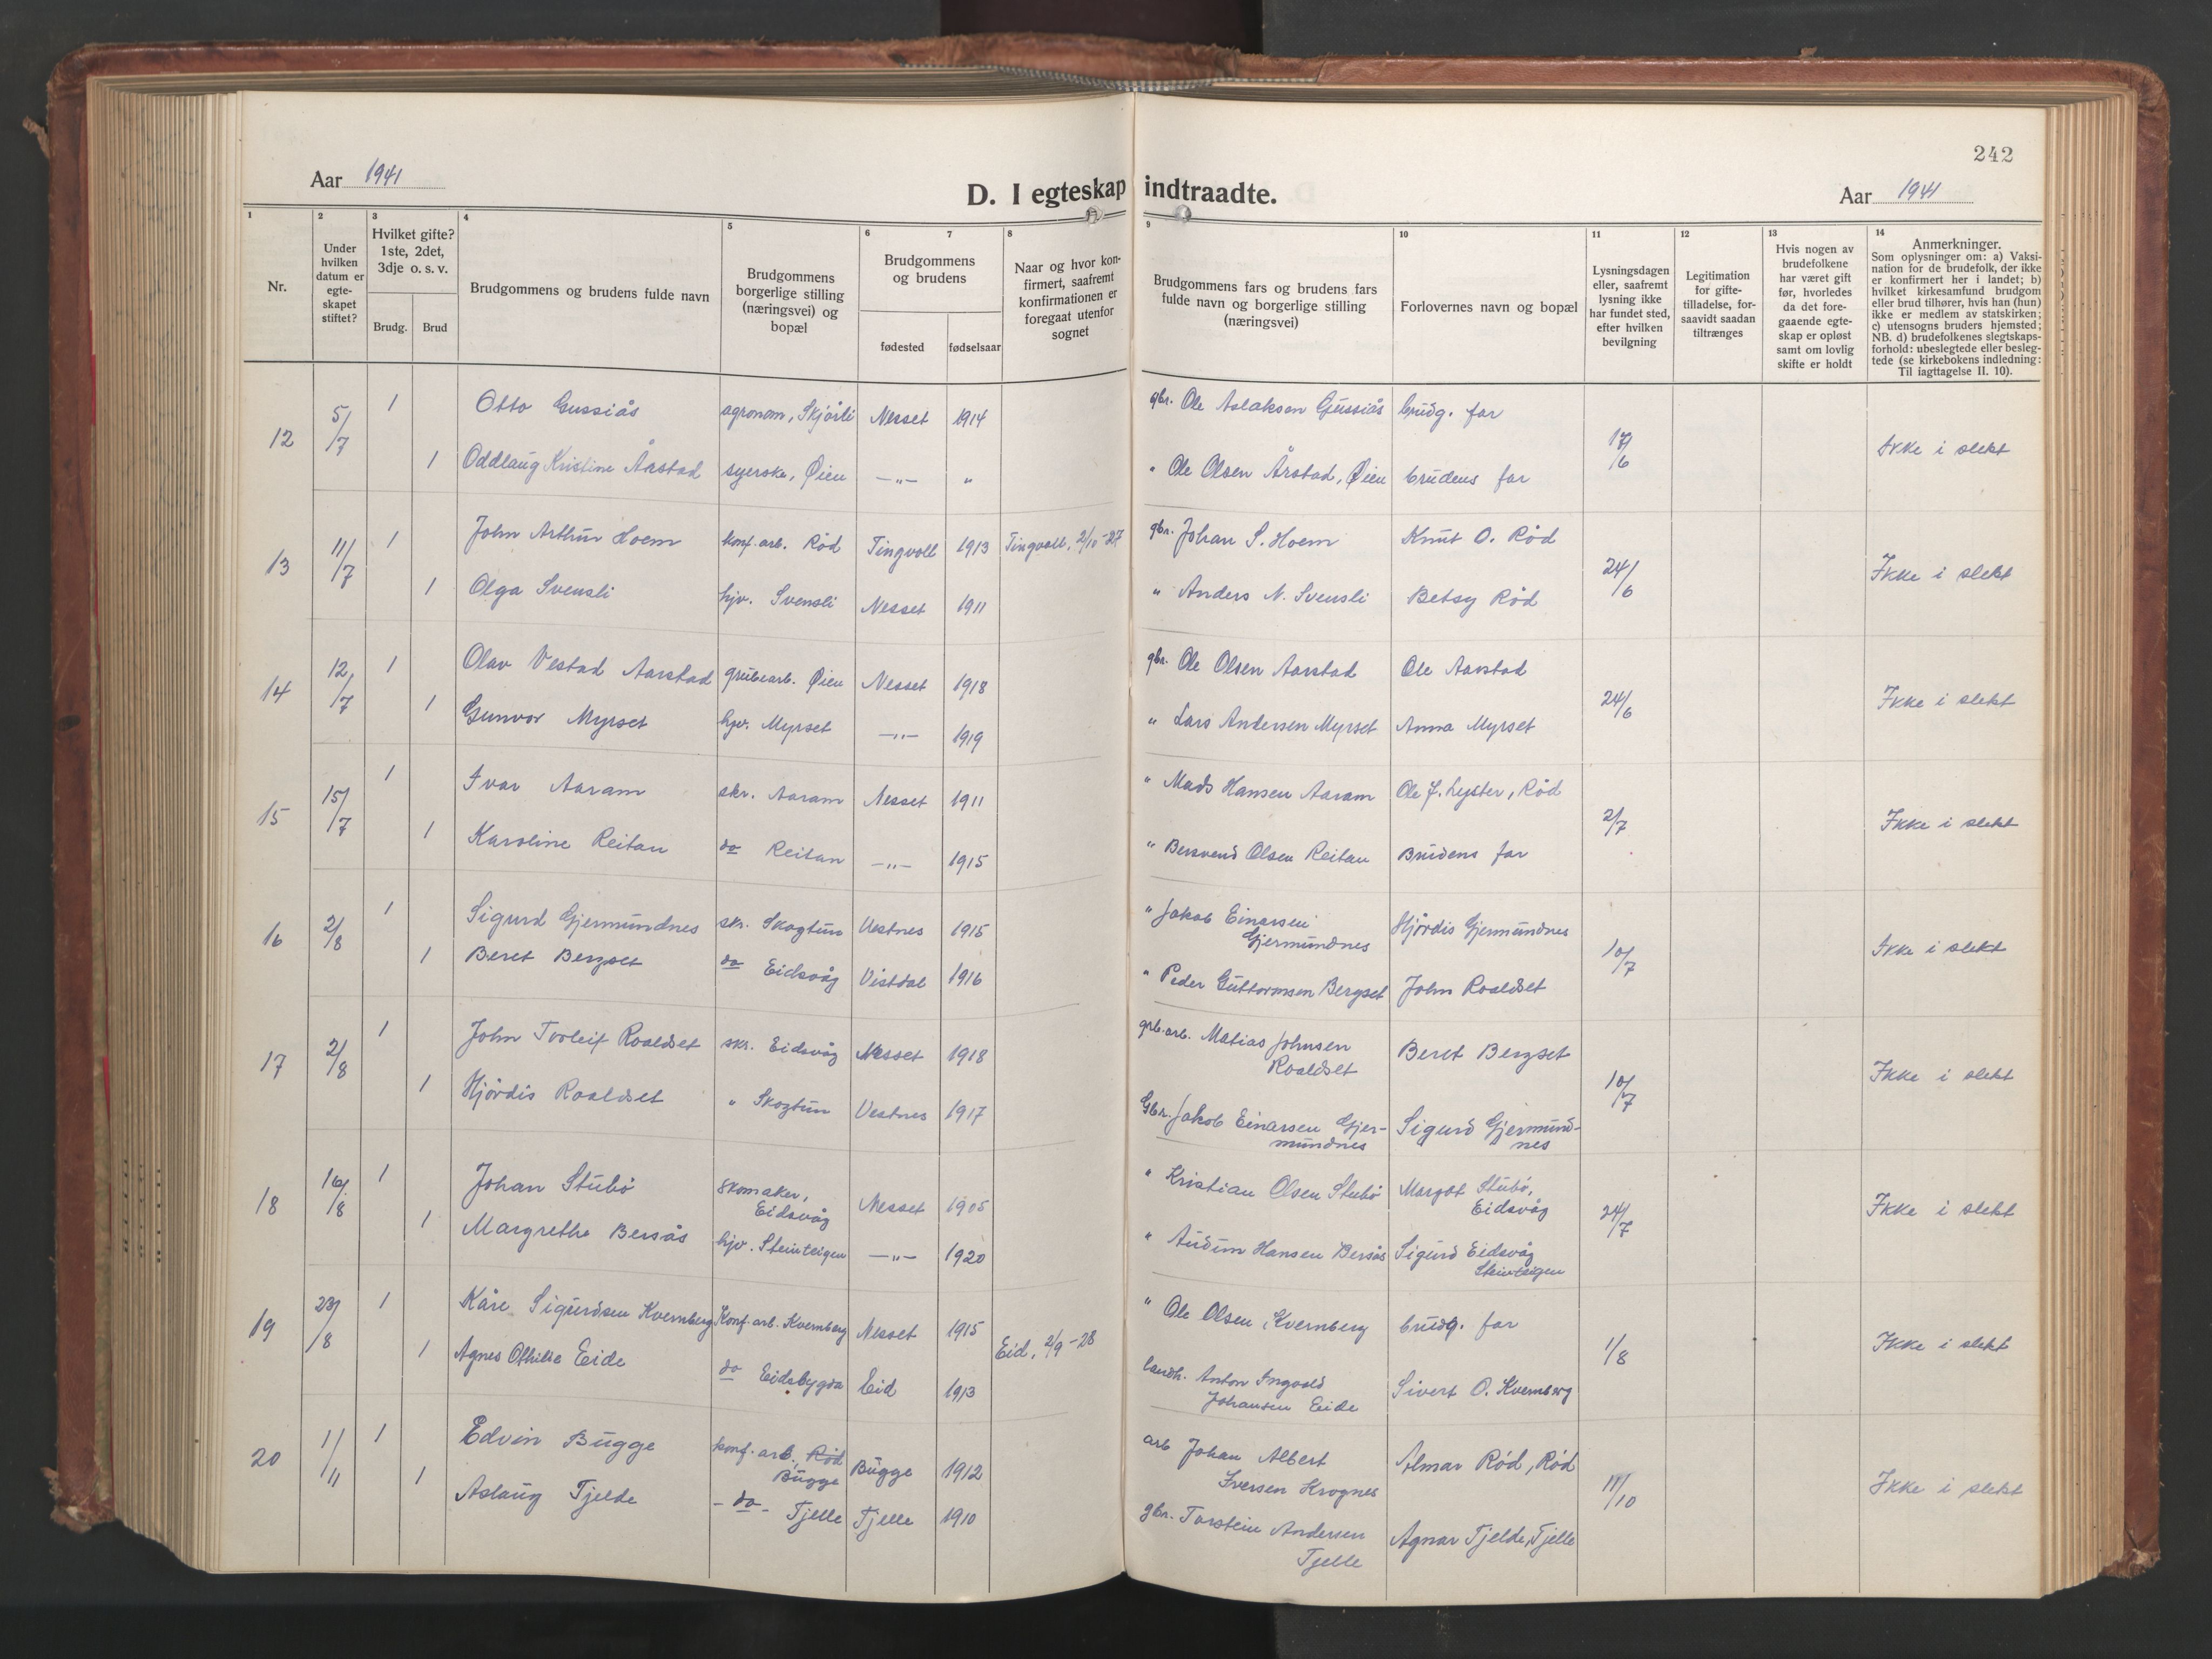 242
Aar 1941
D. I egteskap indtraadte.
Aar 1941
1
2
3
4
5
6
7
8
9
10
11
12
13
14
Nr.
Under
hvilken
datum er
egte-
skapet
stiftet?
Hvilket gifte?
1ste, 2det,
3dje o. s. v.
Brudg.
Brud
Brudgommens og brudens fulde navn
Brudgommens
borgerlige stilling
(næringsvei) og
bopæl
Brudgommens
og brudens
fødested
fødselsaar
Naar og hvor kon-
firmert, saafremt
konfirmationen er
foregaat utenfor
sognet
Brudgommens fars og brudens fars
fulde navn og borgerlige stilling
(næringsvei)
Forlovernes navn og bopæl
Lysningsdagen
eller, saafremt
lysning ikke
har fundet sted,
efter hvilken
bevilgning
Legitimation
for gifte-
tilladelse, for-
saavidt saadan
tiltrænges
Hvis nogen av
brudefolkene
har været gift
før, hvorledes
da det fore-
gaaende egte-
skap er opløst
samt om lovlig
skifte er holdt
Anmerkninger.
Som oplysninger om: a) Vaksi-
nation for de brudefolk, der ikke
er konfirmert her i landet; b)
hvilket kirkesamfund brudgom
eller brud tilhører, hvis han (hun)
ikke er medlem av statskirken;
c) utensogns bruders hjemsted;
NB. d) brudefolkenes slegtskaps-
forhold: ubeslegtede eller besleg-
tede (se kirkebokens indledning:
Til iagttagelse II. 10).
12 5/7 1 Otto Gussiås agronom, Skjørli Nesset 1914 gbr. Ole Aslaksen Gussiås brudg. far 17/6 Ikke i slekt
1 Oddlaug Kristine Årstad syerske, Øien -"- " " Ole Olsen Årstad, Øien brudens far
13 11/7 1 John Arthur Hoem konf. arb. Rød Tingvoll 1913 Tingvoll, 2/10-27 gbr. Johan S. Hoem Knut O. Rød 24/6 Ikke i slekt
1 Olga Svensli hjv. Svensli Nesset 1911 " Anders N. Svensli Betsy Rød
14 12/7 1 Olav Vestad Aarstad grubearb. Øien Nesset 1918 gbr. Ole Olsen Aarstad Ole Aarstad 24/6 Ikke i slekt
1 Gunvor Myrset hjv. Myrset -"- 1919 " Lars Andersen Myrset Anna Myrset
15 15/7 1 Ivar Aaram skr. Aaram Nesset 1911 " Mads Hansen Aaram Ole J. Lyster, Rød 2/7 Ikke i slekt
1 Karoline Reitan do Reitan -"- 1915 " Bersvend Olsen Reitan Brudens far
16 2/8 1 Sigurd Gjermundnes skr. Skogtun Vestnes 1915 " Jakob Einarsen
Gjermundnes Hjørdis Gjermundnes 10/7 Ikke i slekt
1 Beret Bergset do Eidsvåg Vistdal 1916 " Peder Guttormsen Bergset John Roaldset
17 2/8 1 John Torleif Roaldset skr. Eidsvåg Nesset 1918 grb. arb. Matias Johnsen
Roaldset Beret Bergset 10/7 Ikke i slekt
1 Hjördis Roaldset " Skogtun Vestnes 1917 Gbr. Jakob Einarsen Gjer-
mundnes Sigurd Gjermund-
nes
18 16/8 1 Johan Stubö skomaker,
Eidsvåg Nesset 1905 " Kristian Olsen Stubö Margot Stubö,
Eidsvåg 24/7 Ikke i slekt
1 Margrethe Bersås hjv. Steinteigen -"- 1920 " Audun Hansen Bersås Sigurd Eidsvåg
Steinteigen
19 23/8 1 Kåre Sigurdsen Kvernberg Konf. arb. Kvernberg Nesset 1915 " Ole Olsen Kvernberg brudg. far 1/8 Ikke i slekt
1 Agnes Othilie Eide do Eidsbygda Eid 1913 Eid, 2/9-28 landh. Anton Ingvald
Johansen Eide Sivert O. Kvernberg
20 1/11 1 Edvin Bugge konf. arb., Rød
Bugge Bugge 1912 arb Johan Albert
Iversen Krognes Almar Rød, Rød 11/10 Ikke i slekt
1 Aslaug Tjelde -do- Tjelle Tjelle 1910 gbr. Torstein Andersen
Tjelle Agnar Tjelde, Tjelle